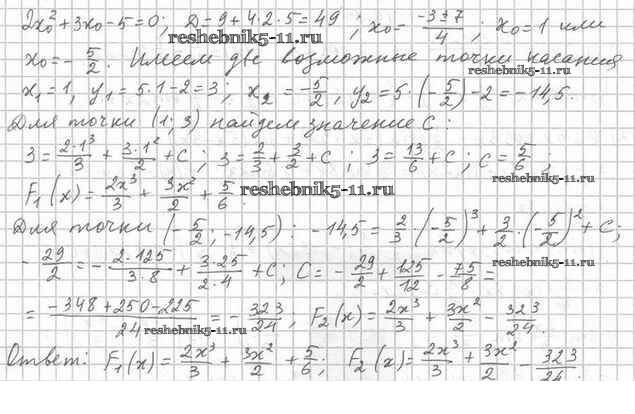 2x₀² + 3x₀ - 5 = 0; D = 9 + 4·2·5 = 49; x₀ = (-3 ± 7)/4; x₀ = 1 или
reshebnik5-11.ru
x₀ = -5/2. Имеем две возможные точки касания
reshebnik5-11.ru
x₁ = 1, y₁ = 5·1 - 2 = 3; x₂ = -5/2, y₂ = 5·(-5/2) - 2 = -14,5.
reshebnik5-11.ru
Для точки (1; 3) найдем значение C:
3 = 2·1³/3 + 3·1²/2 + C; 3 = 2/3 + 3/2 + C; 3 = 13/6 + C; C = 5/6;
F₁(x) = 2x³/3 + 3x²/2 + 5/6.
reshebnik5-11.ru
reshebnik5-11.ru
Для точки (-5/2; -14,5): -14,5 = 2/3·(-5/2)³ + 3/2·(-5/2)² + C;
-29/2 = -2·125/3·8 + 3·25/2·4 + C; C = -29/2 + 125/12 - 75/8 =
reshebnik5-11.ru
= (-348 + 250 - 225)/24 = -323/24; F₂(x) = 2x³/3 + 3x²/2 - 323/24.
reshebnik5-11.ru
reshebnik5-11.ru
Ответ: F₁(x) = 2x³/3 + 3x²/2 + 5/6; F₂(x) = 2x³/3 + 3x²/2 - 323/24.